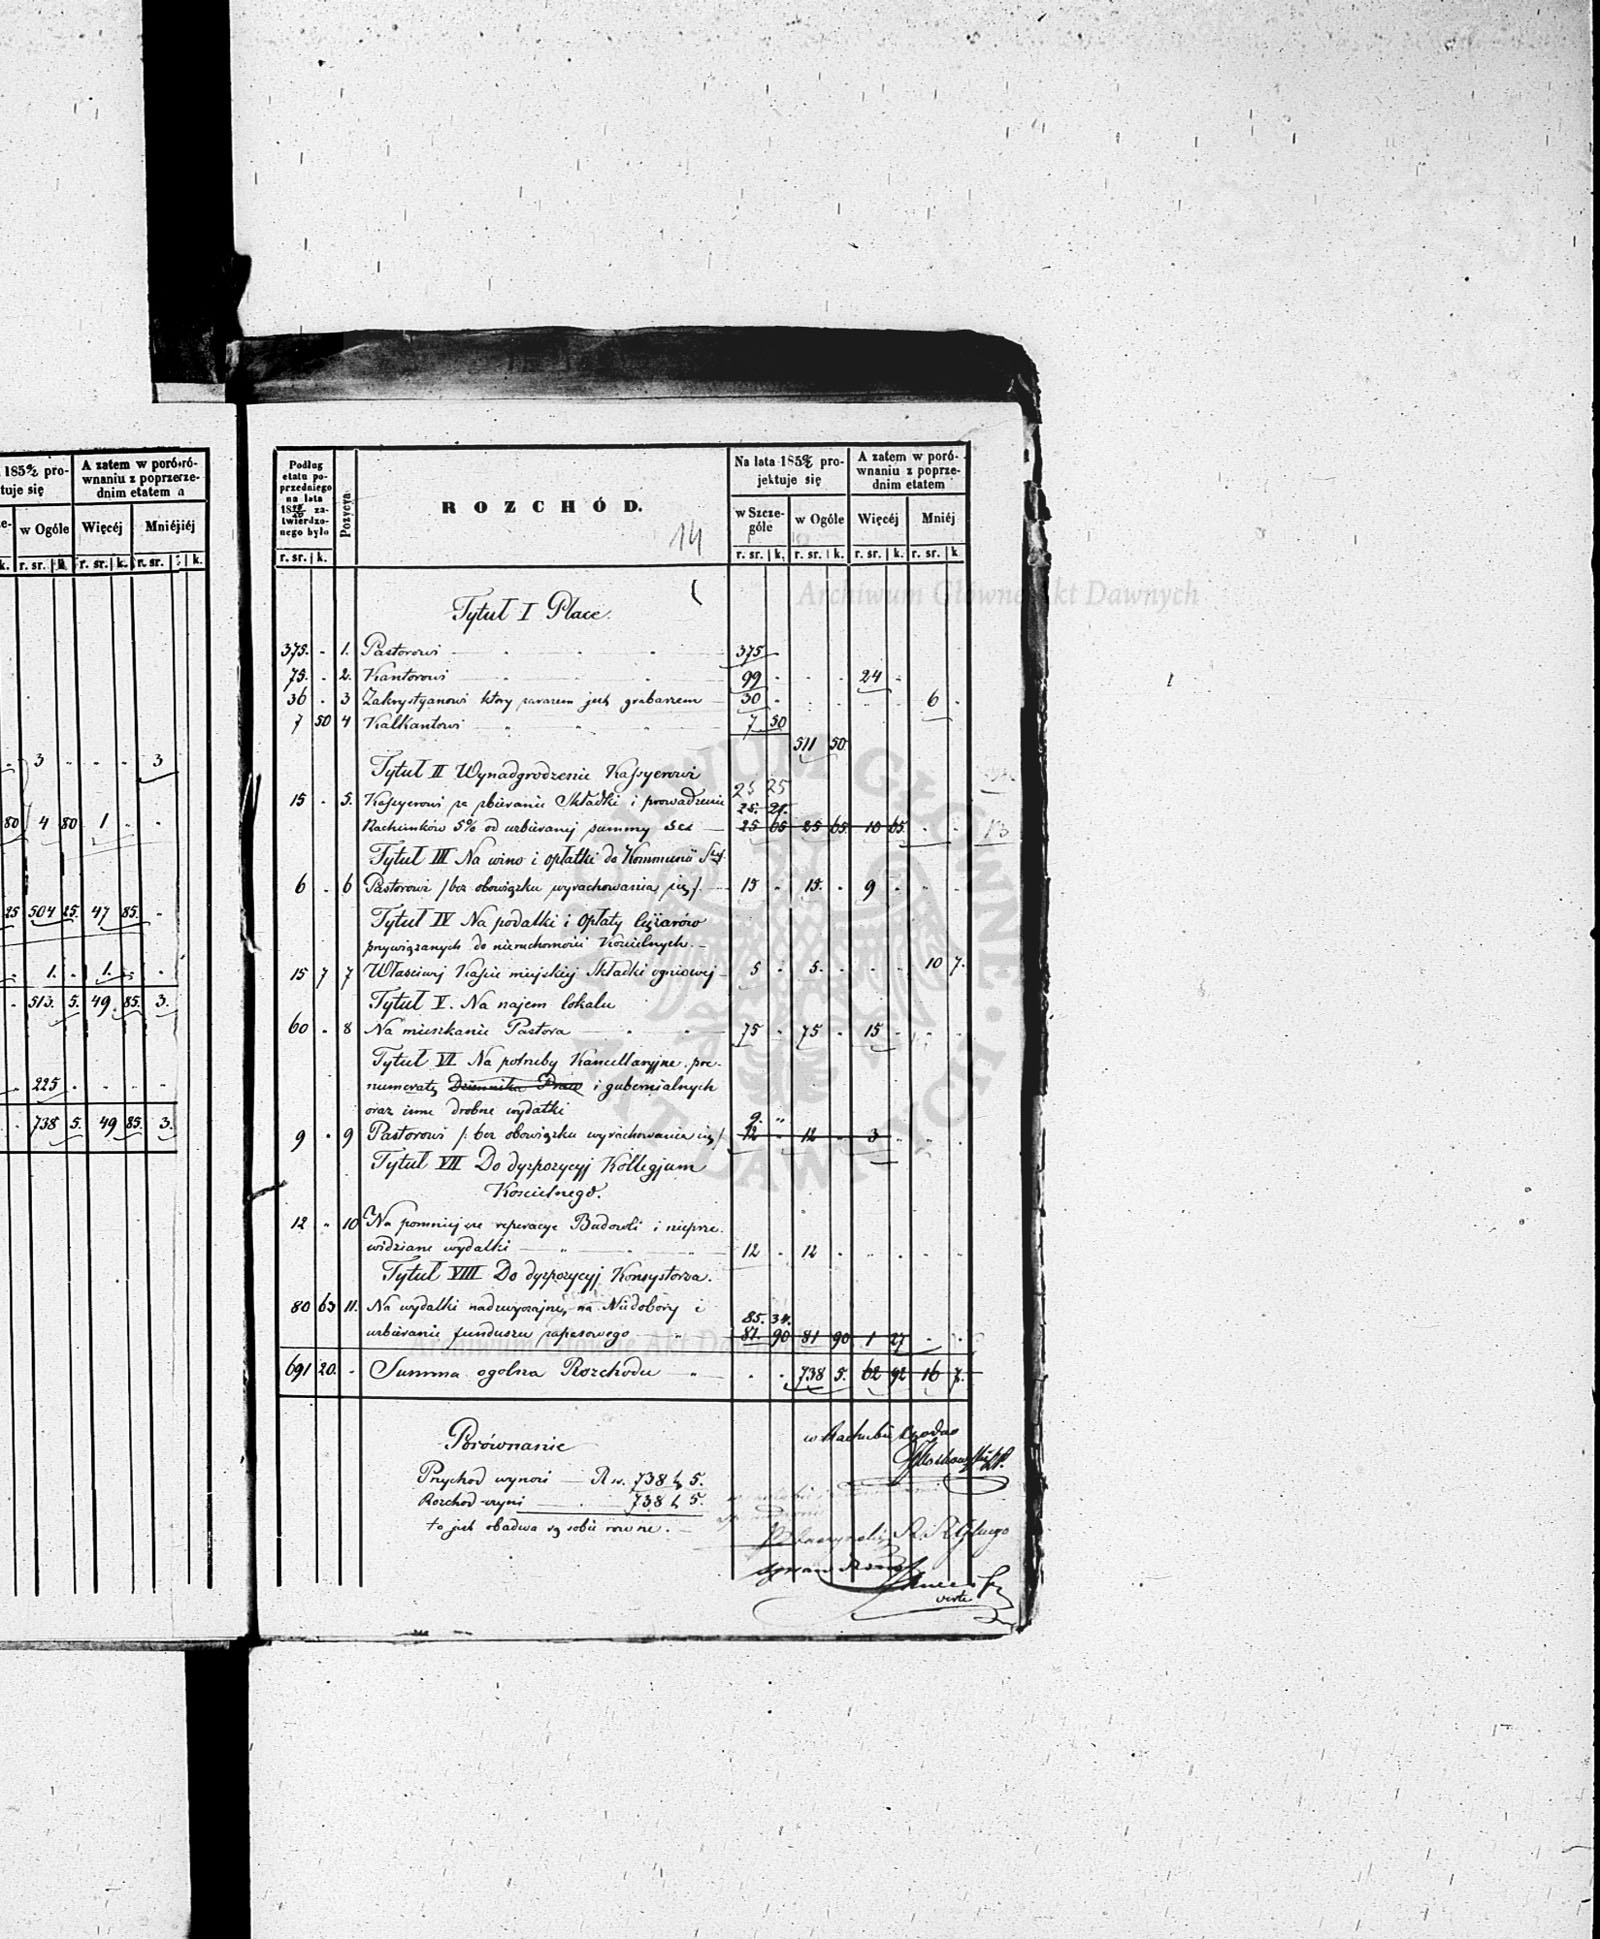 185 0/2 pro-
tuje się
A zatem w porówró-
wnaniu z poprzerze-
dnim etatem a
w Ogóle Więcéj Mniéjiéj
k. r. sr. k. r. sr. k. r. sr. k.
3 " " " 3
80 4 80 1 " "
25 504 25. 47 85. "
1. " 1. "
513. 5. 49 85. 3.
225 " "
738 5. 49 85. 3.
Podług
etatu po-
przedniego
na lata
18 za-
twierdzo-
nego było
Pozycya
ROZCHÓD.
14
Na lata 185 0/2 pro-
jektuje się
A zatem w poró-
wnaniu z poprze-
dnim etatem
w Szcze-
góle
w Ogóle Więcéj Mniéj
r. sr. k. r. sr. k. r. sr. k. r. sr. k. r. sr. k.
Archiwum Główne Akt Dawnych
Tytuł I Płace.
375. " 1. Pastorowi 375 "
75. " 2. Kantorowi 99 " 24 "
36 " 3 Zakrystyanowi który zarazem jest grabarzem 30 " 6 "
7 50 4 Kalkantowi 7 50
511 50
Tytuł II Wynadgrodzenie Kassyerowi
25 25
15 " 5. Kassyerowi za zbieranie Składki i prowadzenie 25. 21.
Rachunków 5% od uzbieranej summy 25 65 25 65 10 65. " "
13
Tytuł III Na wino i opłatki do Kommunii
6 " 6 Pastorowi /bez obowiązku wyrachowania się/. 15 " 15. " 9 " " "
Tytuł IV Na podatki i Opłaty ciężarów
przywiązanych do nieruchomości Kościelnych.
15 7 7 Właściwej Kassie miejskiej Składki ogniowej 5 " 5. " " " 10 7.
Tytuł V. Na najem lokalu
60 " 8 Na mieszkanie Pastora 75 " 75 " 15 " " "
Tytuł VI Na potrzeby Kancellaryjne, pre-
numeratę Dziennika Praw i gubernialnych
oraz inne drobne wydatki 9. "
9 " 9 Pastorowi /: bez obowiązku wyrachowania się/ 12 " 12 " 3 " " "
Tytuł VII Do dyspozycyj Kollegjum
Kościelnego.
12 " 10 Na pomniejsze reperacye Budowli i nieprze-
widziane wydatki 12 " 12 " " " " "
Tytuł VIII Do dyspozycyj Konsystorza.
80 63 11. Na wydatki nadzwyczajne, na Niedobory i 85. 34.
uzbieranie funduszu zapasowego 81 90 81 90 1 27 " "
Archiwum Główne Akt Dawnych
691 20. " Summa ogólna Rozchodu " " 738 5. 62 92 16 7.
Porównanie
Przychód wynosi Rs. 738 k 5.
Rozchód czyni 738 k 5.
to jest obadwa są sobie równe.
w Rachubie zgodno
verte
ARCHIWUM GŁÓWNE AKT DAWNYCH